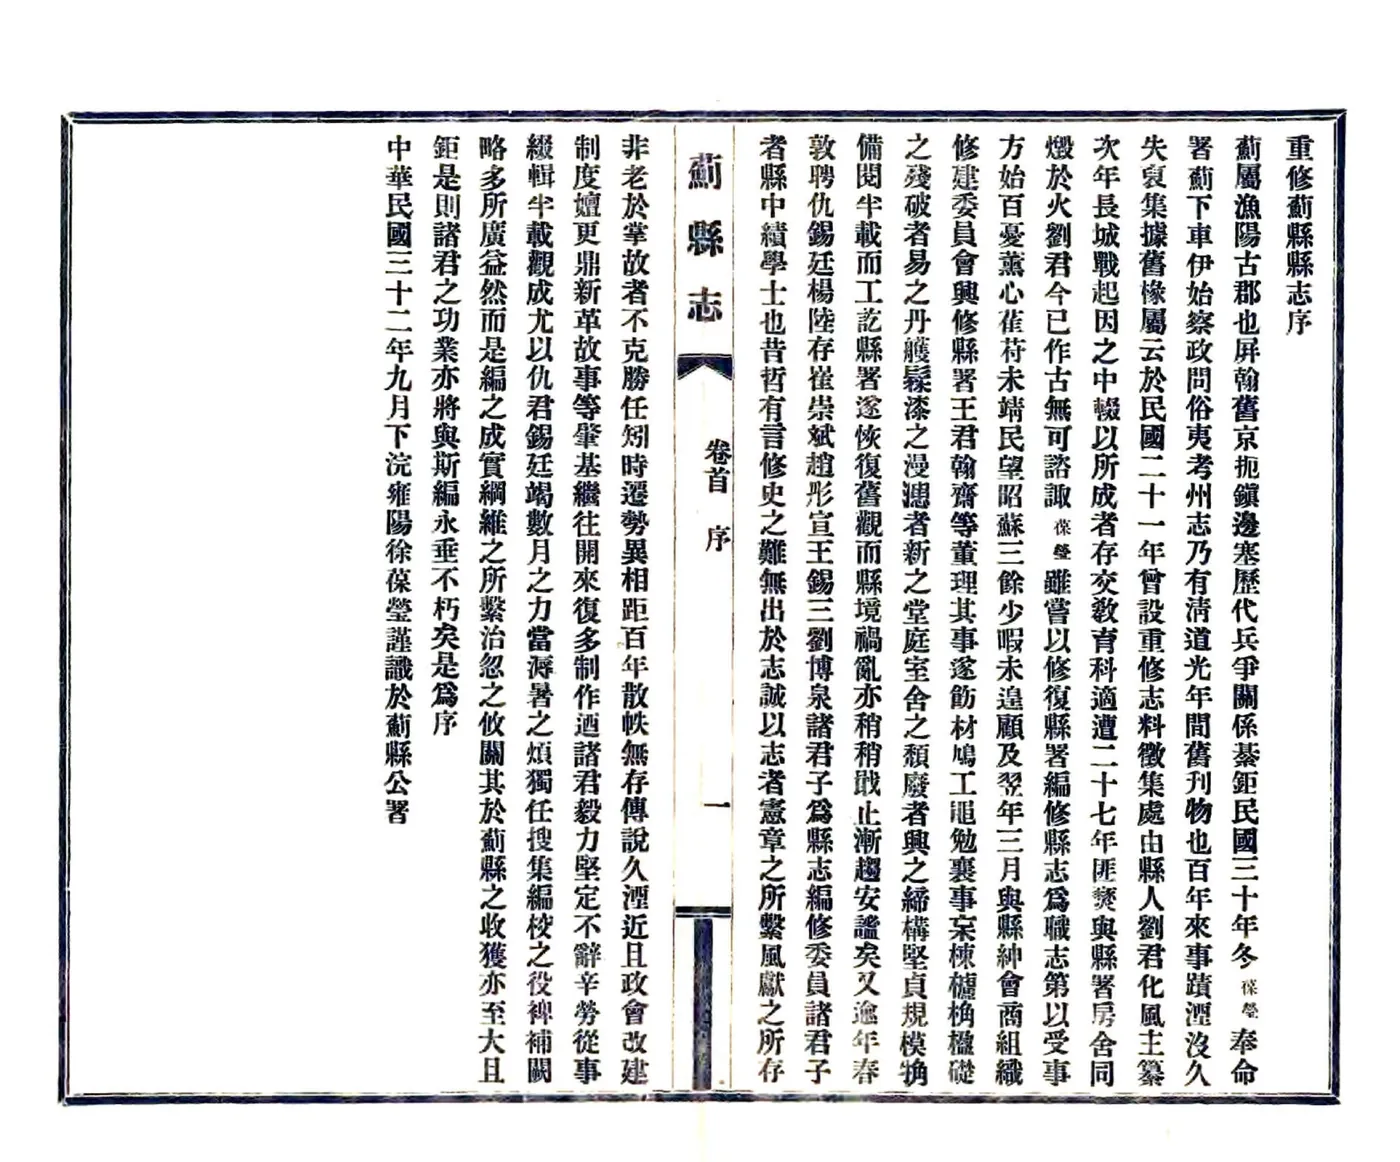 重修薊縣縣志序
薊屬漁陽古郡也屏翰舊京扼鎭邊塞歷代兵爭關係綦鉅民國三十年冬葆瑩奉命
署薊下車伊始察政問俗夷考州志乃有淸道光年間舊刊物也百年來事蹟湮沒久
失裒集據舊掾屬云於民國二十一年曾設重修志料徵集處由縣人劉君化風主纂
次年長城戰起因之中輟以所成者存交敎育科適遭二十七年匪燹與縣署房舍同
燬於火劉君今已作古無可諮諏葆瑩雖嘗以修復縣署編修縣志爲職志第以受事
方始百憂薰心萑苻未靖民望昭蘇三餘少暇未遑顧及翌年三月與縣紳會商組織
修建委員會興修縣署王君翰齋等董理其事遂飭材鳩工黽勉襄事宲棟櫨桷楹礎
之殘破者易之丹雘髹漆之漫漶者新之堂庭室舍之頹廢者興之締構堅貞規模觕
備閱半載而工訖縣署遂恢復舊觀而縣境禍亂亦稍稍戢止漸趨安謐矣又逾年春
敦聘仇錫廷楊陸存崔崇斌趙彤宣王錫三劉博泉諸君子爲縣志編修委員諸君子
者縣中績學士也昔哲有言修史之難無出於志誠以志者憲章之所繫風獻之所存
薊縣志
卷首 序
一
非老於掌故者不克勝任矧時遷勢異相距百年散帙無存傳說久湮近且政會改建
制度嬗更鼎新革故事等肇基繼往開來復多制作迺諸君毅力堅定不辭辛勞從事
綴輯半載觀成尤以仇君錫廷竭數月之力當溽暑之煩獨任搜集編校之役裨補闕
略多所廣益然而是編之成實綱維之所繫治忽之攸關其於薊縣之收獲亦至大且
鉅是則諸君之功業亦將與斯編永垂不朽矣是爲序
中華民國三十二年九月下浣雍陽徐葆瑩謹識於薊縣公署